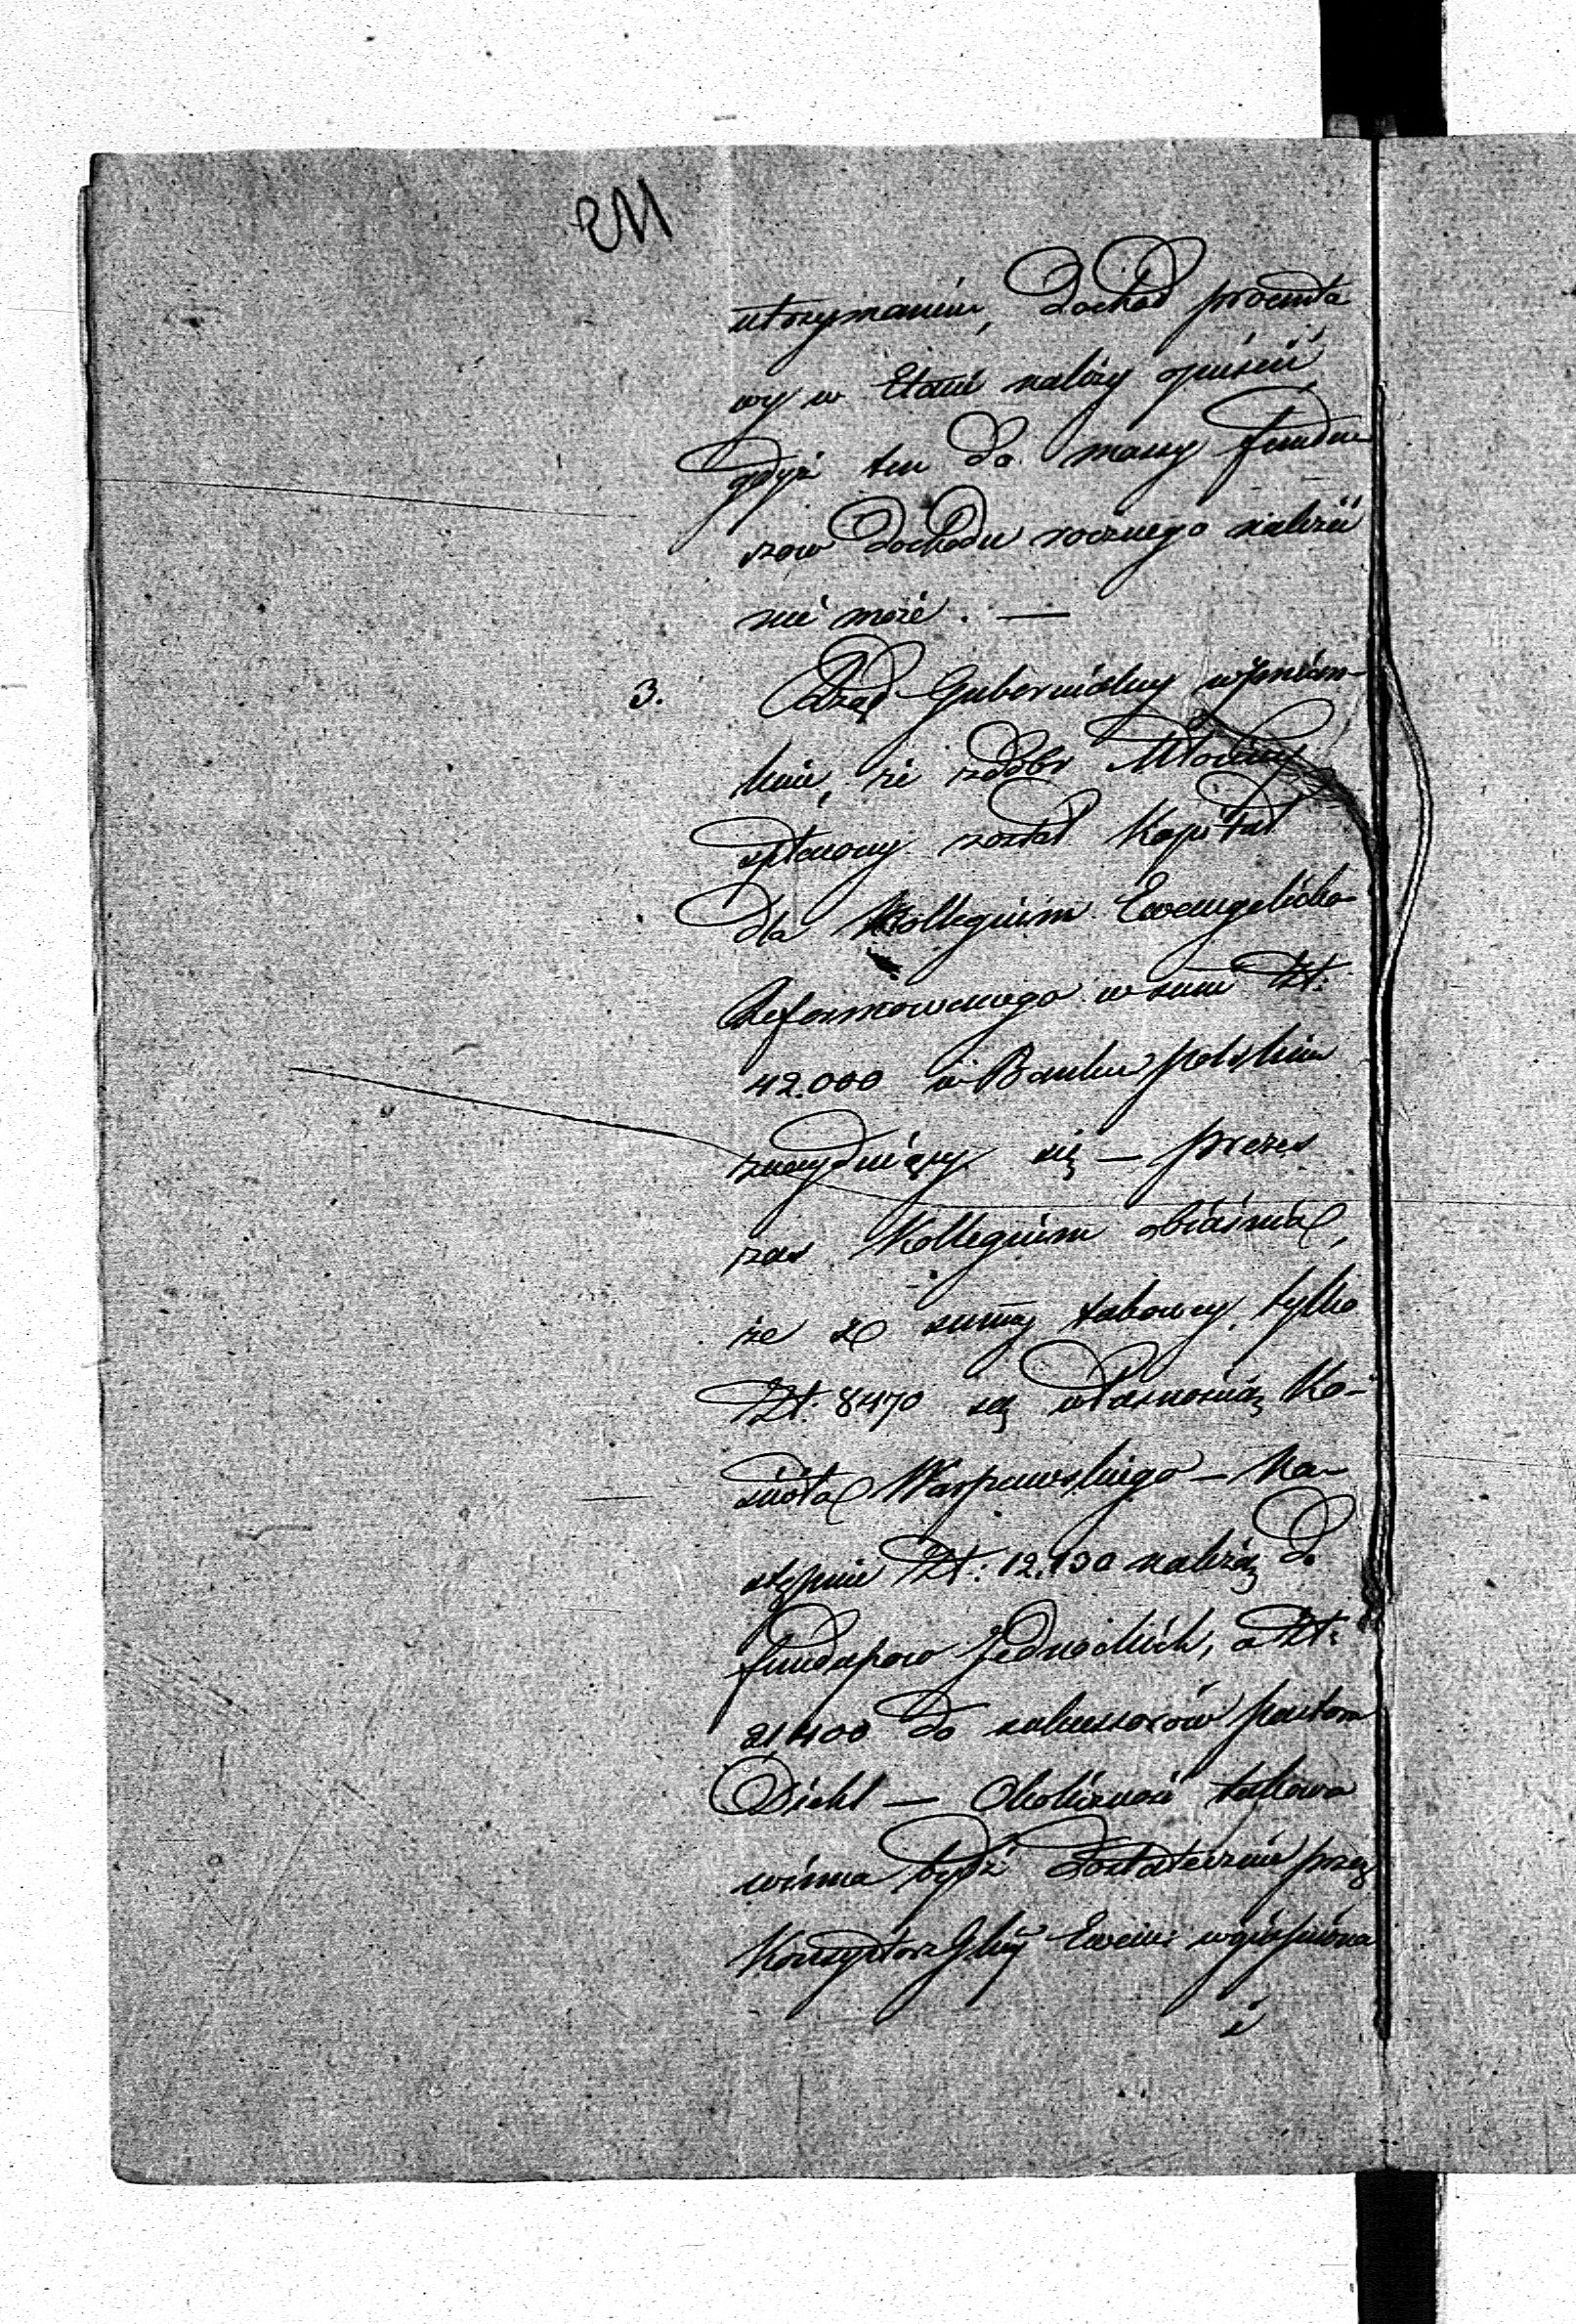 utrzymaniu, dochód procento
wy w Etacie należy opuścić
gdyż ten do massy fundu
szow dochodu rocznego należeć
nie może. —
3. Rząd Gubernialny wspom-
że z dóbr Młociny
spłacony został Kapitał
dla Kollegium Ewangelicko-
Reformowanego w sumie Złt:
42.000 w Banku Polskim
znaydujący się — prezes
zas Kollegium obiaśnia,
ze z summy takowey, tylko
Złt: 8470 są własnością Ko-
ścioła Warszawskiego — Na-
stępnie Złt: 12.130 należą do
funduszow Jednockich, a Złt:
21400 do sukcessorów pastora
Diehl — Okoliczność takowa
winna bydź dostatecznie przez
Konsystorz Glny Ewan: wyjaśniona
i